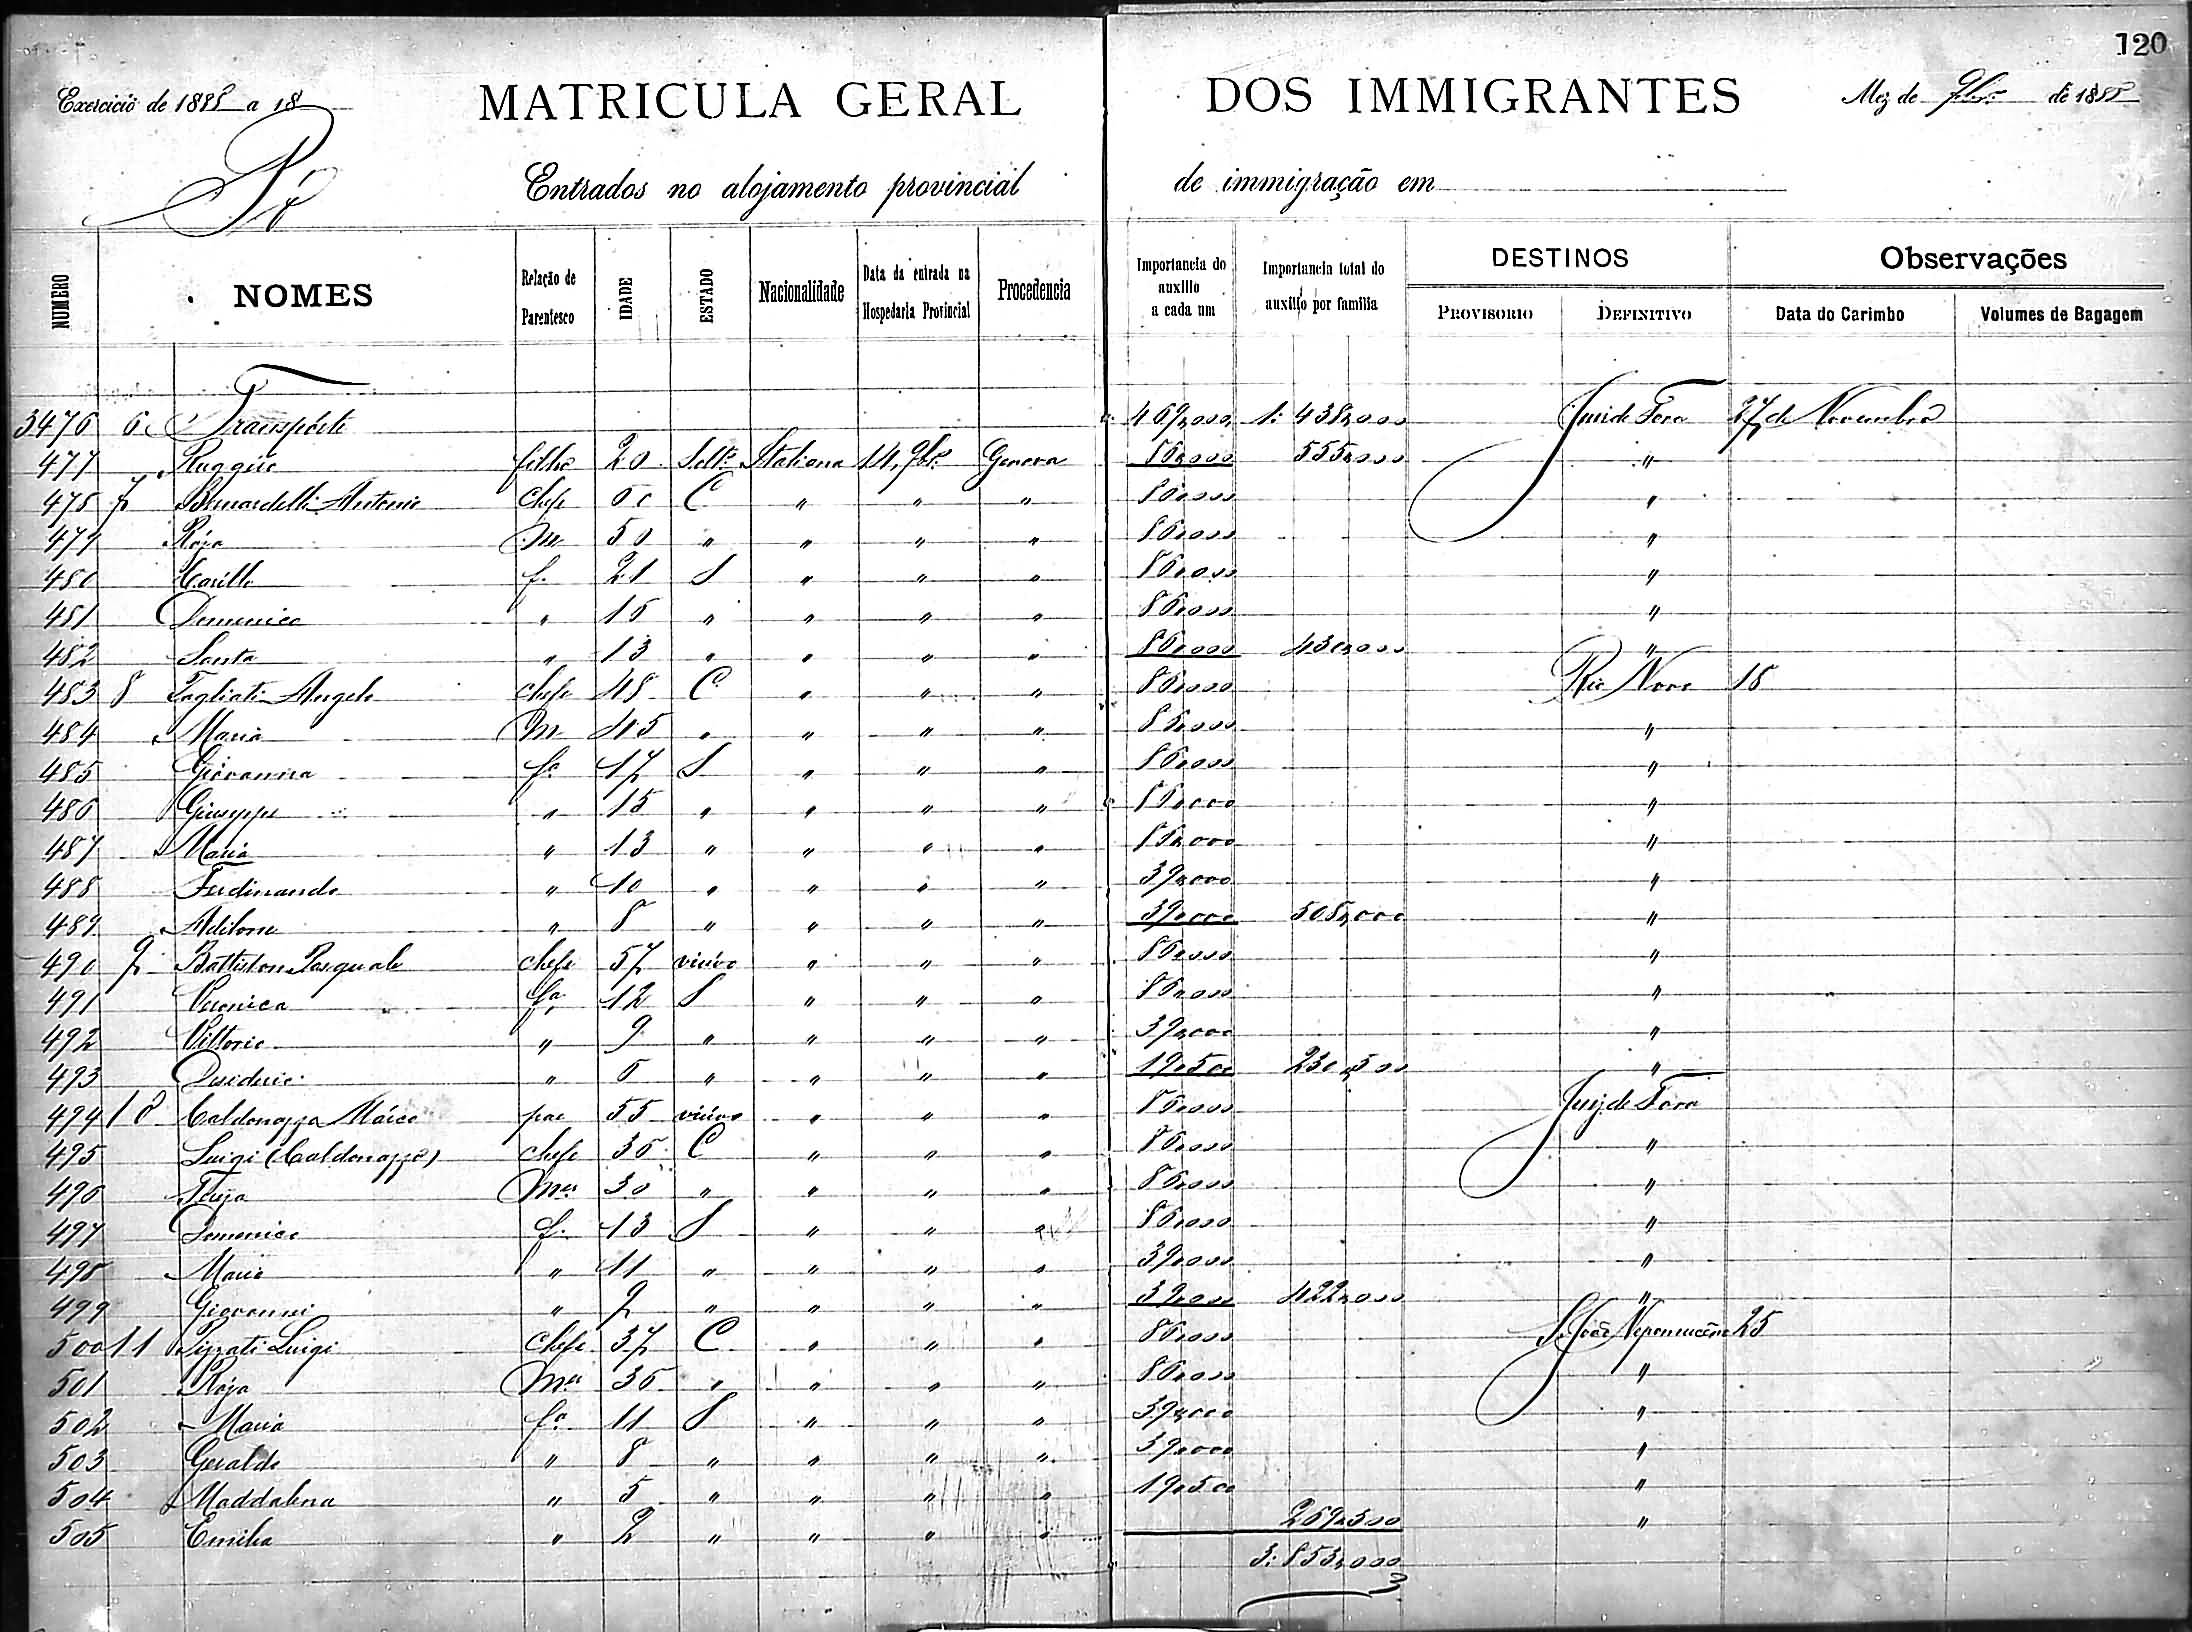 120
Exercicio de 1888 a 18
MATRICULA GERAL DOS IMMIGRANTES
Mez de 9bro de 1888
Entrados no alojamento provincial de immigração em
NUMERO NOMES Relação de Parentesco IDADE ESTADO Nacionalidade Data da entrada na Hospedaria Provincial Procedencia Importancia do auxilio a cada um Importancia total do auxilio por familia DESTINOS PROVISORIO DEFINITIVO Observações Data do Carimbo Volumes de Bagagem
3476 6 Transporte 469,000 1:438,000 Juiz de Fora 27 de Novembro
477 Ruggiero filho 20 Soltº Italiana 14, 9bro Genova 86,000 555,000 "
478 7 Bernardelli Antonio Chefe 60 C " " " 86,000 "
479 Roza M 50 " " " " 86,000 "
480 f. 21 S " " " 86,000 "
481 Domenica " 16 " " " " 86,000 "
482 Santa " 13 " " " " 86,000 430,000 "
483 8 Tagliati Angelo chefe 48 C " " " 86,000 Rio Novo 18
484 Maria M 45 " " " " 86,000 "
485 Giovanna fª 17 S " " " 86,000 "
486 Giuseppe " 15 " " " " 86,000 "
487 Maria " 13 " " " " 86,000 "
488 Ferdinando " 10 " " " " 39,000 "
489 " 8 " " " " 39,000 508,000 "
490 9 Battiston Pasquale chefe 57 viuvo " " " 86,000 "
491 Veronica fª 12 S " " " 86,000 "
492 Vittorio " 9 " " " " 39,000 "
493 Desiderio " 6 " " " " 19,500 230,500 "
494 10 Caldonazza Marco pae 55 viuvo " " " 86,000 Juiz de Fora
495 Luigi (Caldonazzo) chefe 36 C " " " 86,000 "
496 Mer 30 " " " " 86,000 "
497 Domenico f. 13 S " " " 86,000 "
498 Maria " 11 " " " " 39,000 "
499 Giovanni " 9 " " " " 39,000 422,000 "
500 11 Luigi Chefe 37 C " " " 86,000 S. João Nepomuceno 25
501 Roza Mer 36 " " " " 86,000 "
502 Maria fª 11 S " " " 39,000 "
503 Geraldo " 8 " " " " 39,000 "
504 Maddalena " 5 " " " " 19,500 "
505 Emilia " 2 " " " " 269,500 "
3:853,000